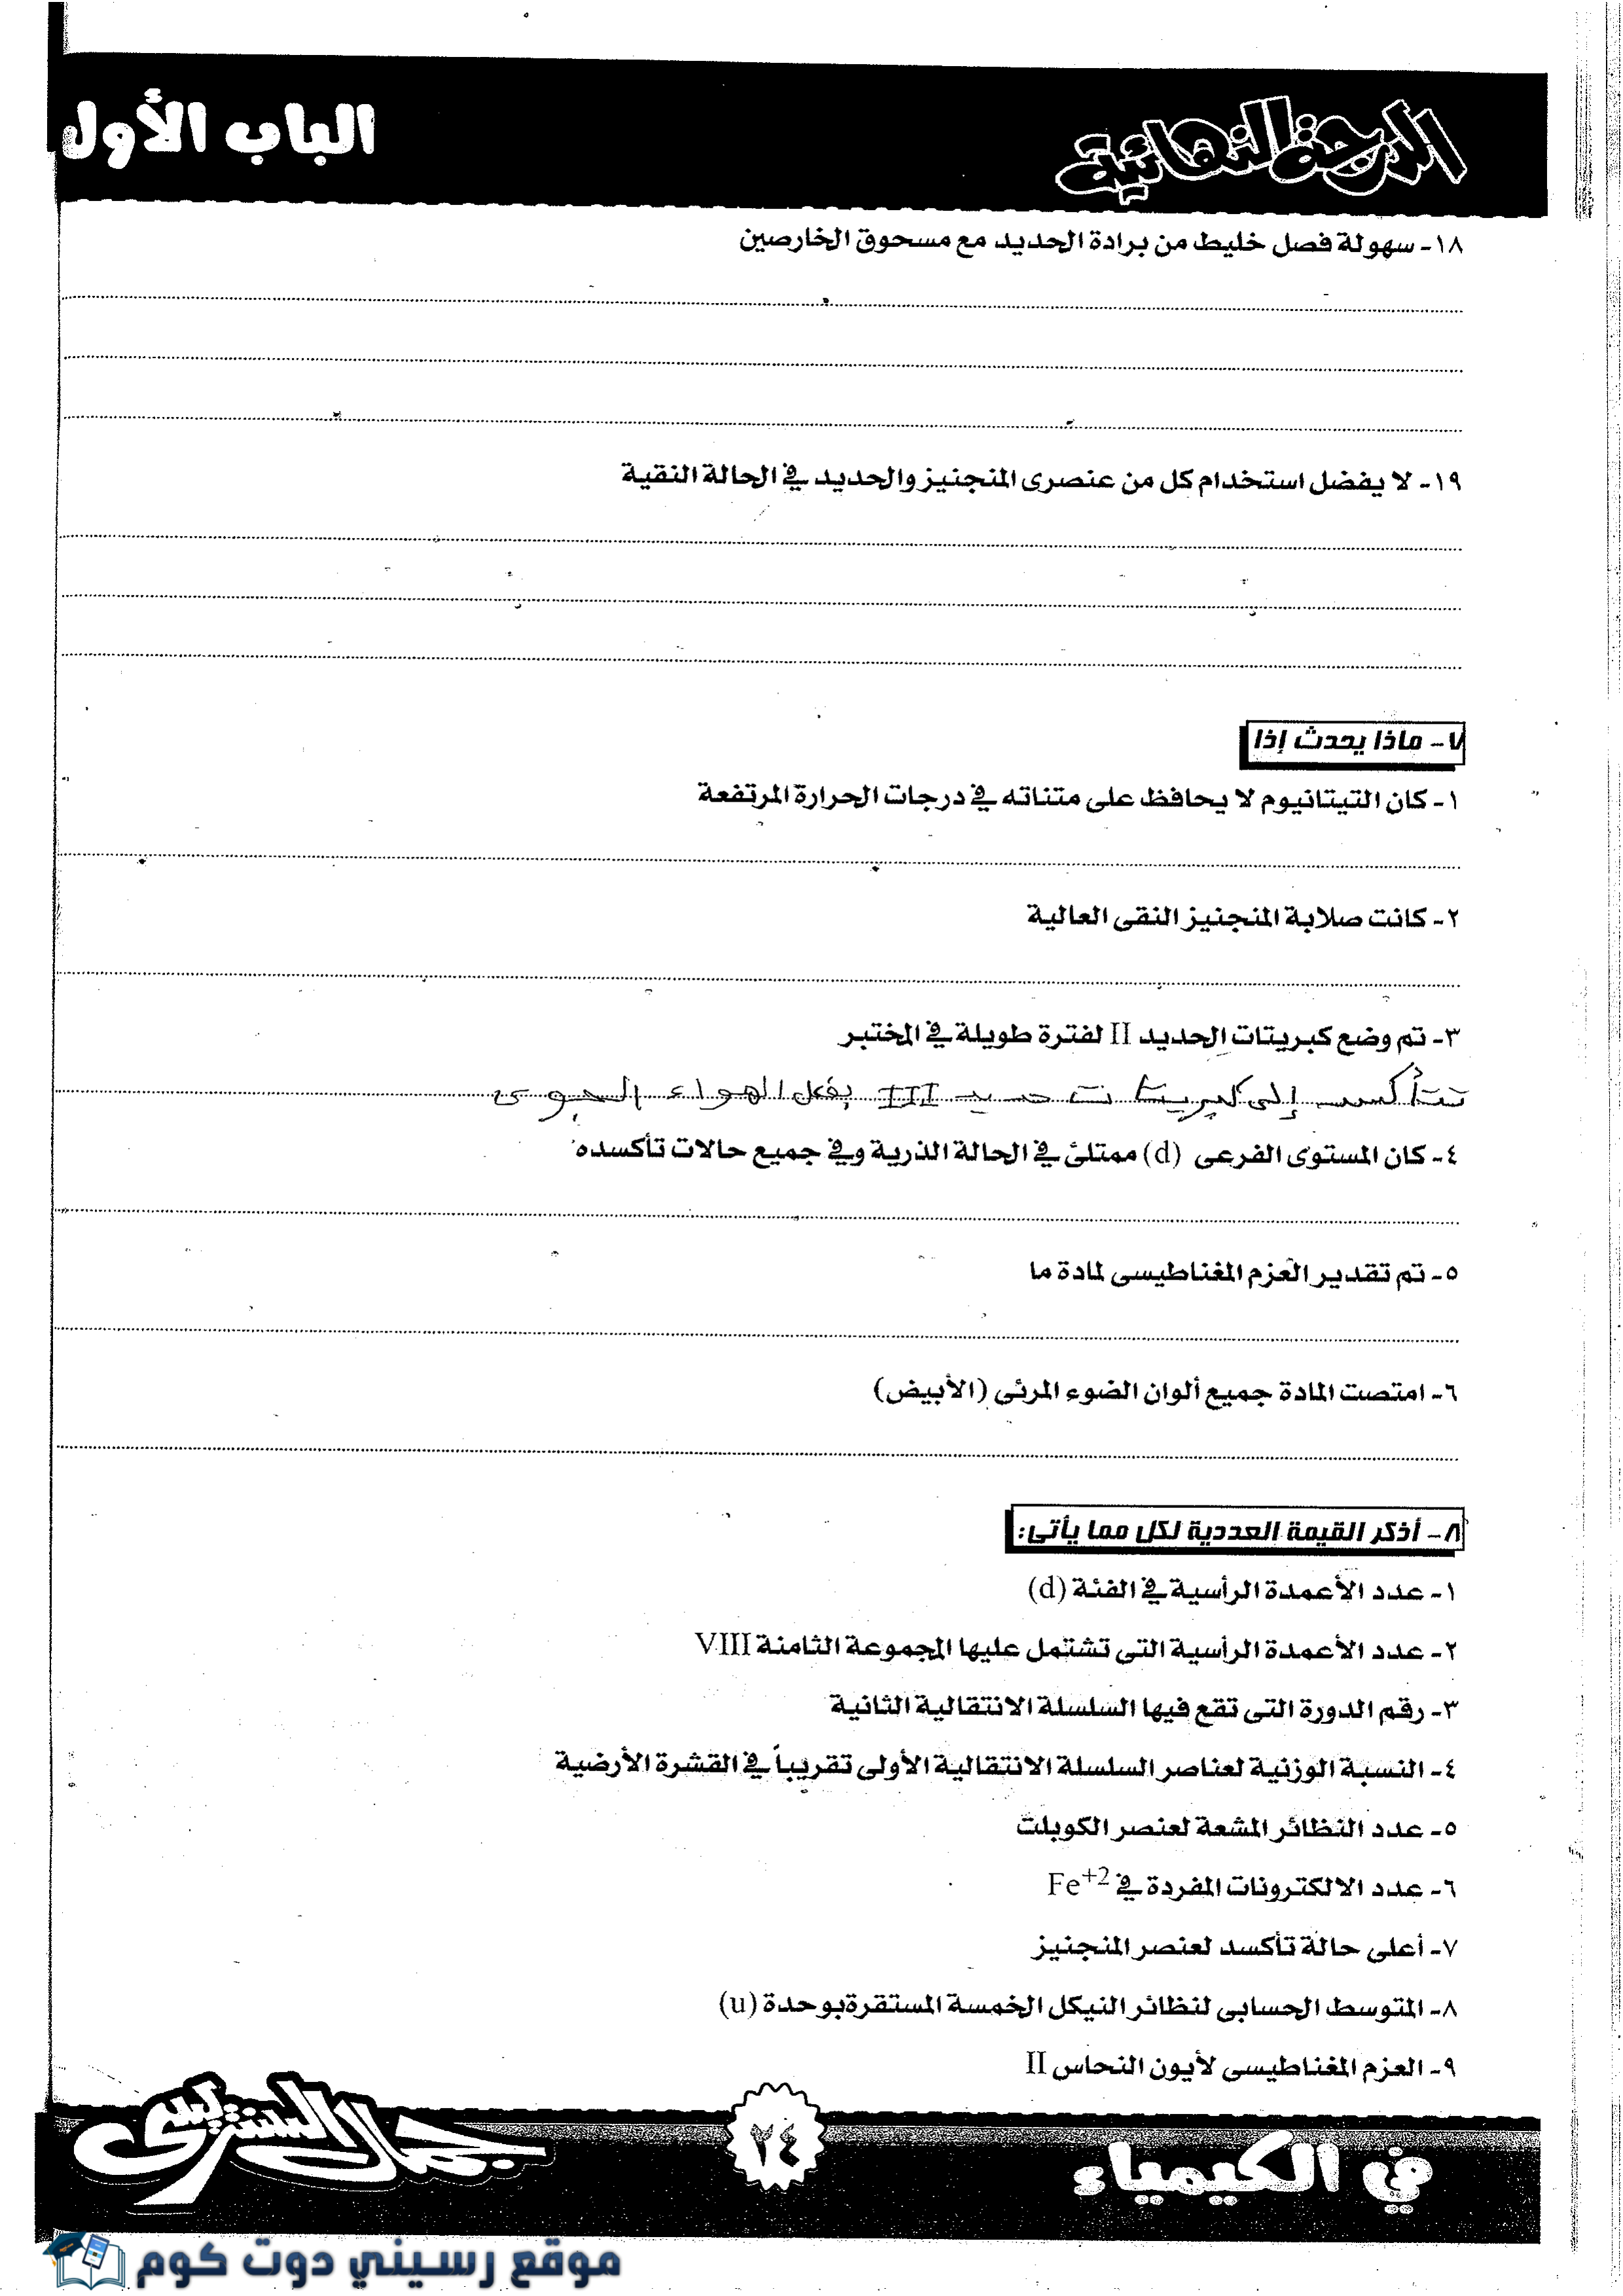 الدرجة النهائية
الباب الأول
١٨- سهولة فصل خليط من برادة الحديد مع مسحوق الخارصين
١٩- لا يفضل استخدام كل من عنصرى المنجنيز والحديد في الحالة النقية
٧- ماذا يحدث إذا
١- كان التيتانيوم لا يحافظ على متناته في درجات الحرارة المرتفعة
٢- كانت صلابة المنجنيز النقى العالية
٣- تم وضع كبريتات الحديد II لفترة طويلة في المختبر
تتأكسد إلى كبريتات حديد III بفعل الهواء الجوى
٤- كان المستوى الفرعى (d) ممتلئ في الحالة الذرية وفي جميع حالات تأكسده
٥- تم تقدير العزم المغناطيسى لمادة ما
٦- امتصت المادة جميع ألوان الضوء المرئى (الأبيض)
٨- أذكر القيمة العددية لكل مما يأتى:
١- عدد الأعمدة الرأسية في الفئة (d)
٢- عدد الأعمدة الرأسية التى تشتمل عليها المجموعة الثامنة VIII
٣- رقم الدورة التى تقع فيها السلسلة الانتقالية الثانية
٤- النسبة الوزنية لعناصر السلسلة الانتقالية الأولى تقريباً في القشرة الأرضية
٥- عدد النظائر المشعة لعنصر الكوبلت
٦- عدد الالكترونات المفردة في Fe⁺²
٧- أعلى حالة تأكسد لعنصر المنجنيز
٨- المتوسط الحسابى لنظائر النيكل الخمسة المستقرة بوحدة (u)
٩- العزم المغناطيسى لأيون النحاس II
في الكيمياء
٢٤
جمال السنتريسى
موقع رسيني دوت كوم